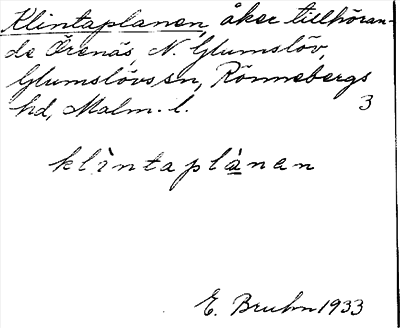 Klintaplanen, åker tillhöran-
de Örenäs, N. Glumslöv,
Glumslövs sn, Rönnebergs
hd, Malm. l. 3
klìntaplànan
E. Bruhn 1933